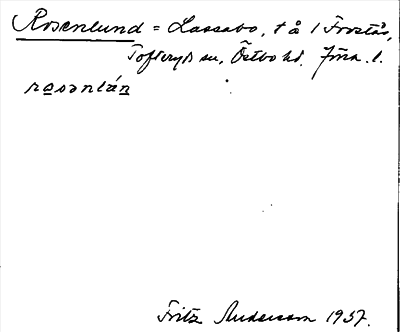 Rosenlund = Lassabo, t å 1 Frostås,
Tofteryds sn, Östbo hd. Jöns. l.
rosənlán
Fritz Anderson 1937.